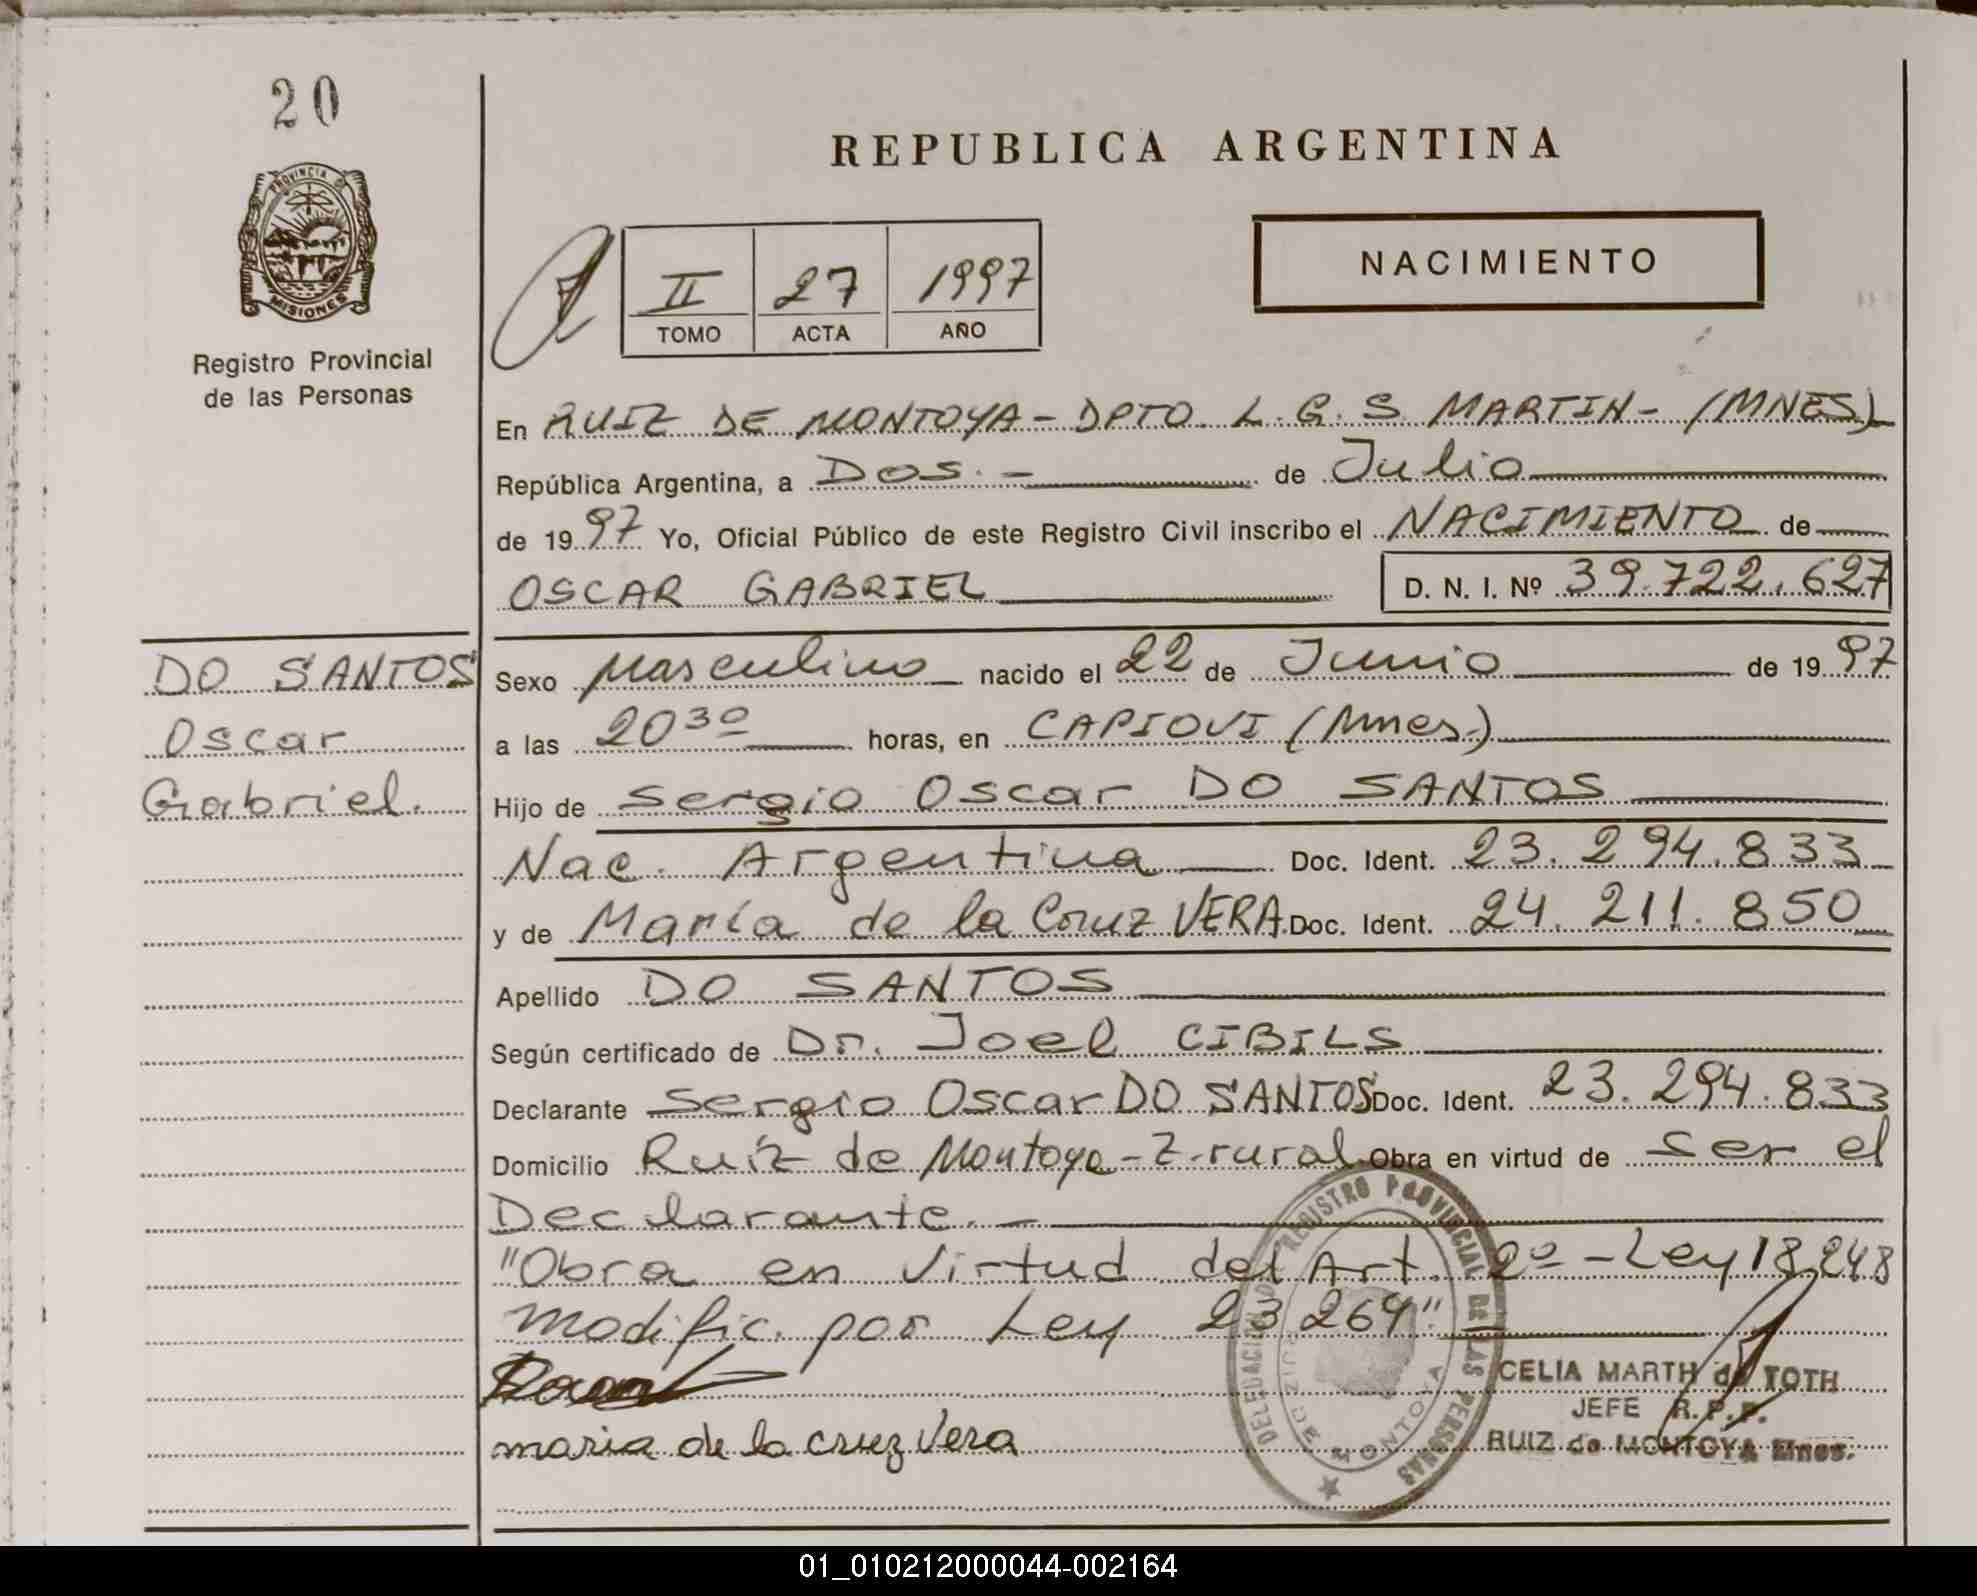 20
PROVINCIA DE
MISIONES
Registro Provincial
de las Personas
REPUBLICA ARGENTINA
II 27 1997
TOMO ACTA AÑO
NACIMIENTO
En RUIZ DE MONTOYA - DPTO. L. G. S. MARTIN - (MNES)
República Argentina, a Dos. - de Julio
de 1997 Yo, Oficial Público de este Registro Civil inscribo el NACIMIENTO de
OSCAR GABRIEL D. N. I. Nº 39.722.627
DO SANTOS
Oscar
Gabriel.
Sexo Masculino nacido el 22 de Junio de 1997
a las 20 30 horas, en CAPIOVI (Mnes.)
Hijo de Sergio Oscar DO SANTOS
Nac. Argentina Doc. Ident. 23.294.833
y de María de la Cruz VERA Doc. Ident. 24.211.850
Apellido DO SANTOS
Según certificado de Dr. Joel CIBILS
Declarante Sergio Oscar DO SANTOS Doc. Ident. 23.294.833
Domicilio Ruiz de Montoya - Z. rural Obra en virtud de ser el
Declarante. -
"Obra en virtud del Art. 2º - Ley 18.248
modific. por Ley 23264"
maria de la cruz Vera
DELEGACION REGISTRO PROVINCIAL DE LAS PERSONAS
RUIZ DE MONTOYA
CELIA MARTH de TOTH
JEFE R. P. P.
RUIZ de MONTOYA Mnes.
01_010212000044-002164